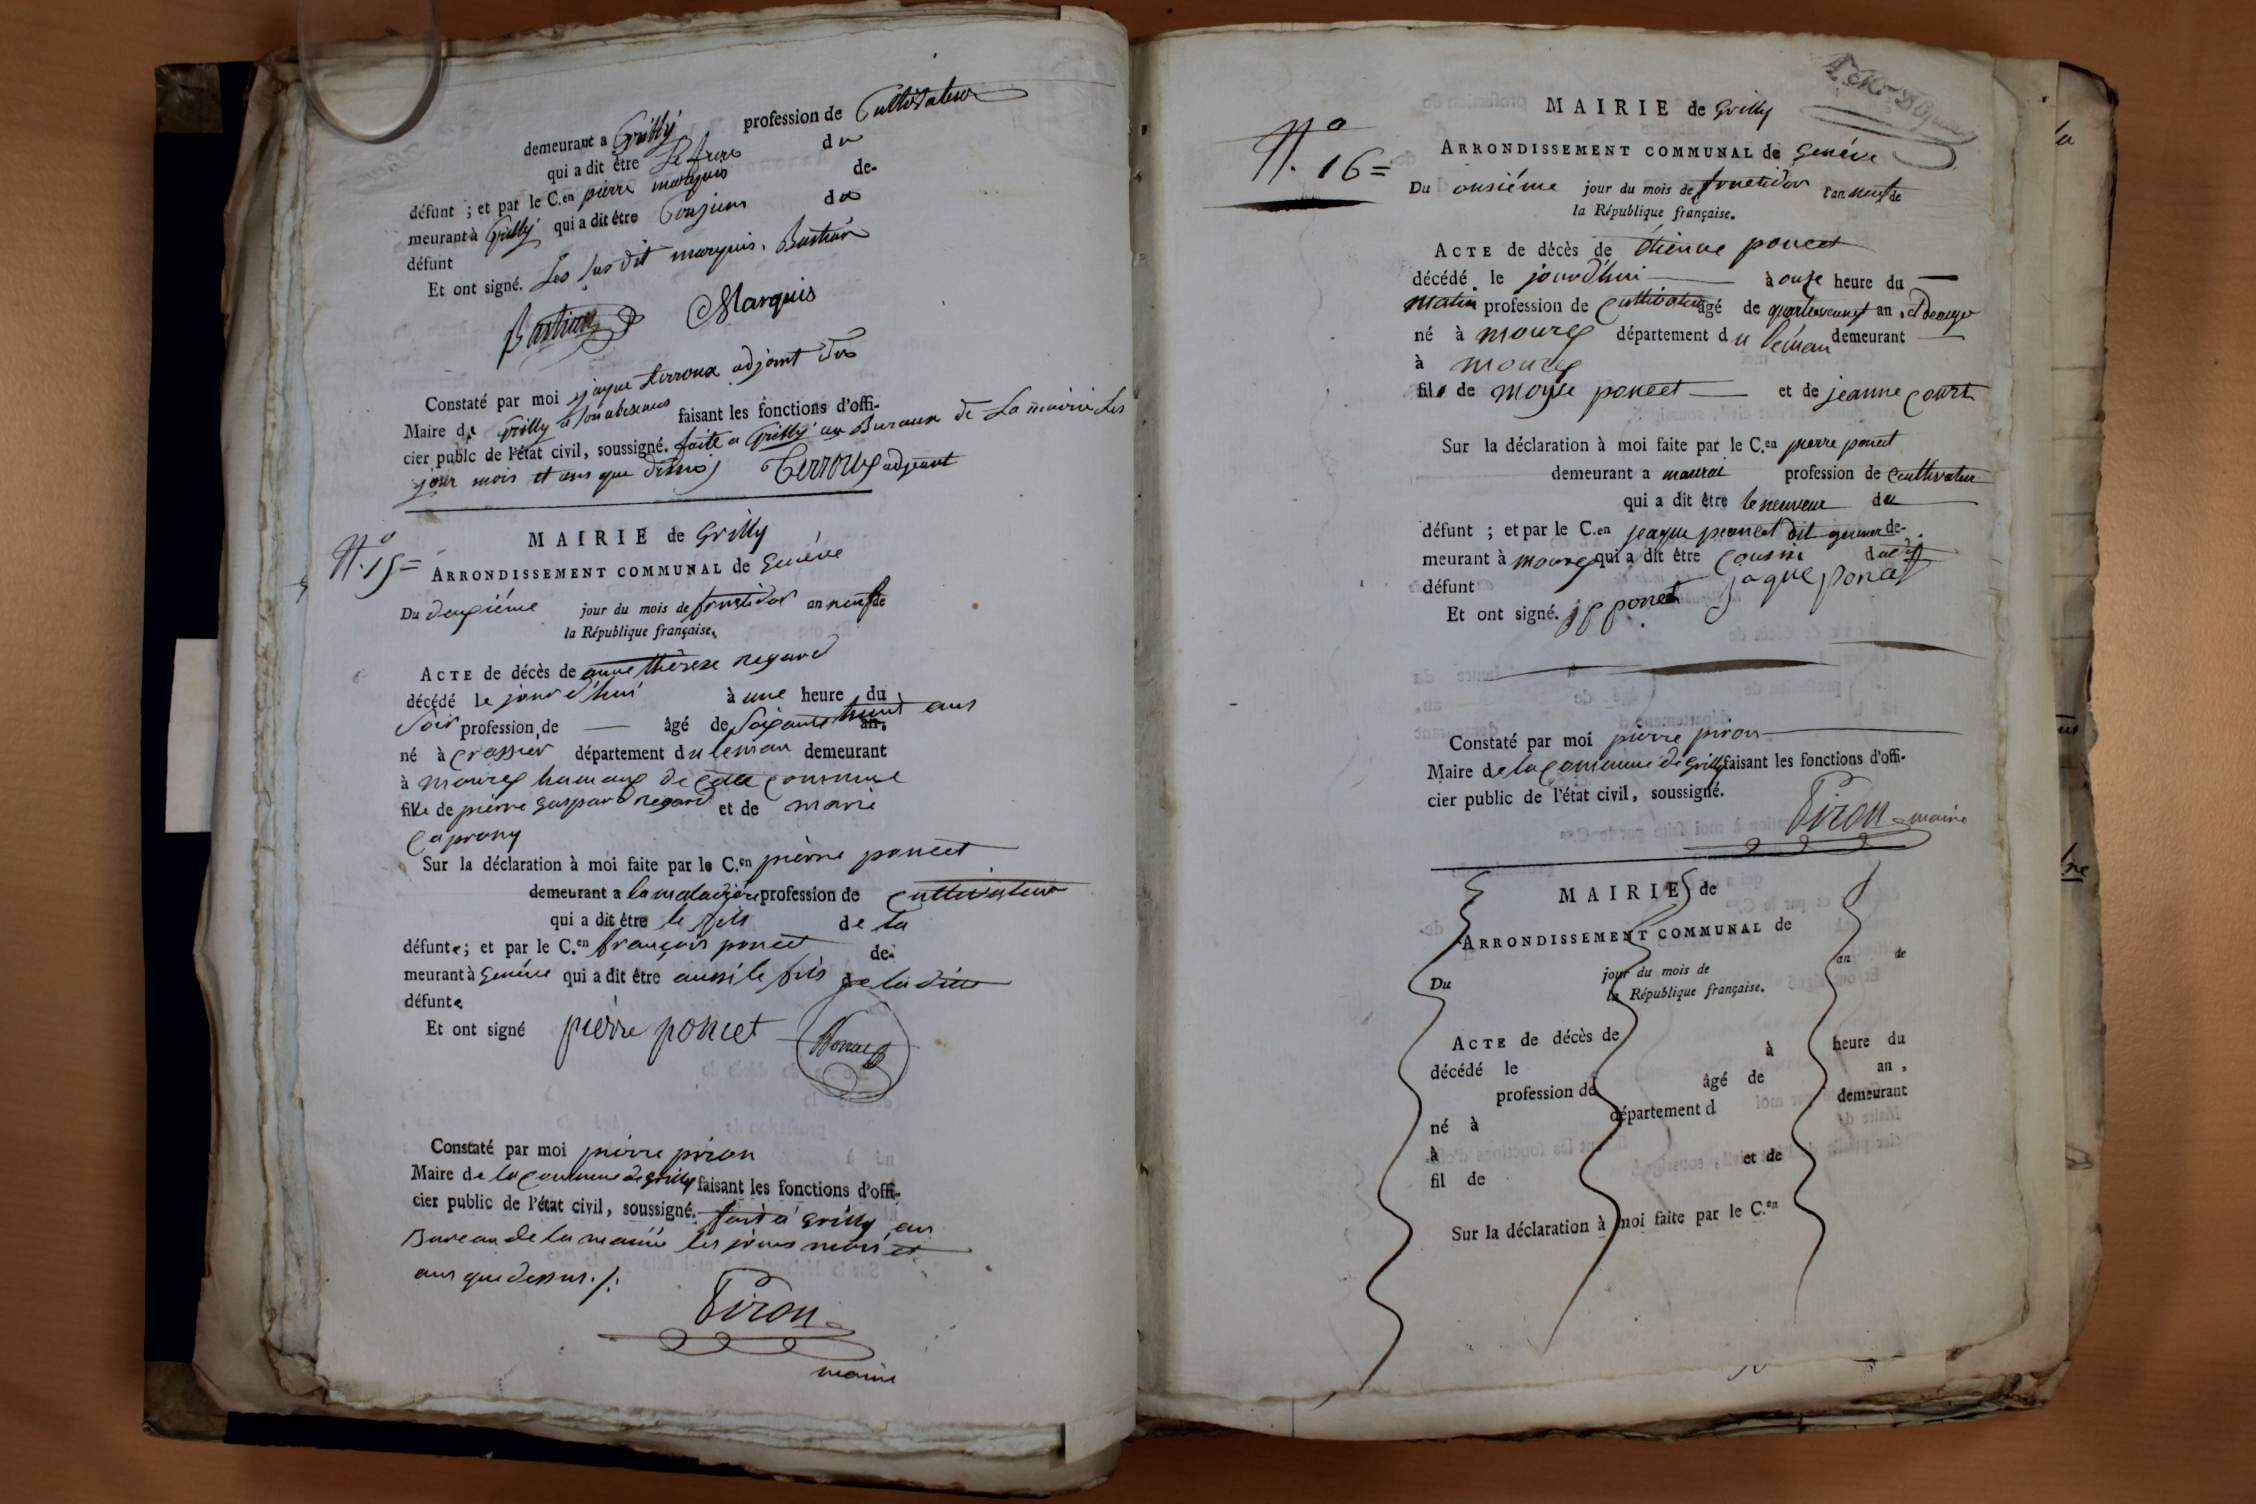 demeurant a Grilly profession de Cultivateur
qui a dit être Le frere du
défunt ; et par le C.en pierre marquis de-
meurant à Grilly qui a dit être Cousiens du
défunt
Et ont signé. Les sus dit marquis. Bastian
Bastian Marquis
Constaté par moi jaque terroux adjoint du
Maire de Grilly a son absence faisant les fonctions d'offi-
cier publc de l'état civil, soussigné. faite a Grilly au Bureaux de La mairie Les
jour mois et ans que dessus Terroux adjoint
N.o 15=
MAIRIE de Grilly
ARRONDISSEMENT COMMUNAL de Genève
Du deuxiéme jour du mois de fructidor an neuf de
la République française.
ACTE de décès de anne thèrese regard
décédé le jourd'hui à une heure du
soir profession de — âgé de soixante huit ans
né à Crassier département du leman demeurant
à mourex hamaux de cette commune
fille de pierre gaspard regard et de marie
Caprony
Sur la déclaration à moi faite par le C.en pierre poncet
demeurant a la maladière profession de cultivateur
qui a dit être le fils de la
défunte; et par le C.en françois poncet de-
meurant à Genéve qui a dit être aussi le fils de la dite
défunte
Et ont signé pierre poncet Poncet
Constaté par moi pierre piron
Maire de la commune de Grilly faisant les fonctions d'offi-
cier public de l'état civil, soussigné. fait à Grilly au
Bureau de la mairie les jours mois et
ans que dessus ./.
Piron
maire
N.o 16=
MAIRIE de Grilly
ARRONDISSEMENT COMMUNAL de Genève
Du onsiéme jour du mois de fructidor l'an neuf de
la République française.
ACTE de décès de étienne poncet
décédé le jourd'hui à onze heure du
matin profession de Cultivateur âgé de quarteneuf an, et demy
né à mourex département du léman demeurant
à mourex
fils de moyse poncet et de jeanne court
Sur la déclaration à moi faite par le C.en pierre poncet
demeurant a maurai profession de Cultivateur
qui a dit être le neuveux du
défunt ; et par le C.en jeaque poncet dit de-
meurant à mourex qui a dit être Coussin dudit
défunt
Et ont signé. jp poncet jaque poncet
Constaté par moi pierre piron
Maire de la Commune de Grilly faisant les fonctions d'offi-
cier public de l'état civil, soussigné.
Piron maire
MAIRIE de
ARRONDISSEMENT COMMUNAL de
Du jour du mois de an de
la République française.
ACTE de décès de
décédé le à heure du
profession de âgé de an,
né à département d demeurant
à
fil de et de
Sur la déclaration à moi faite par le C.en